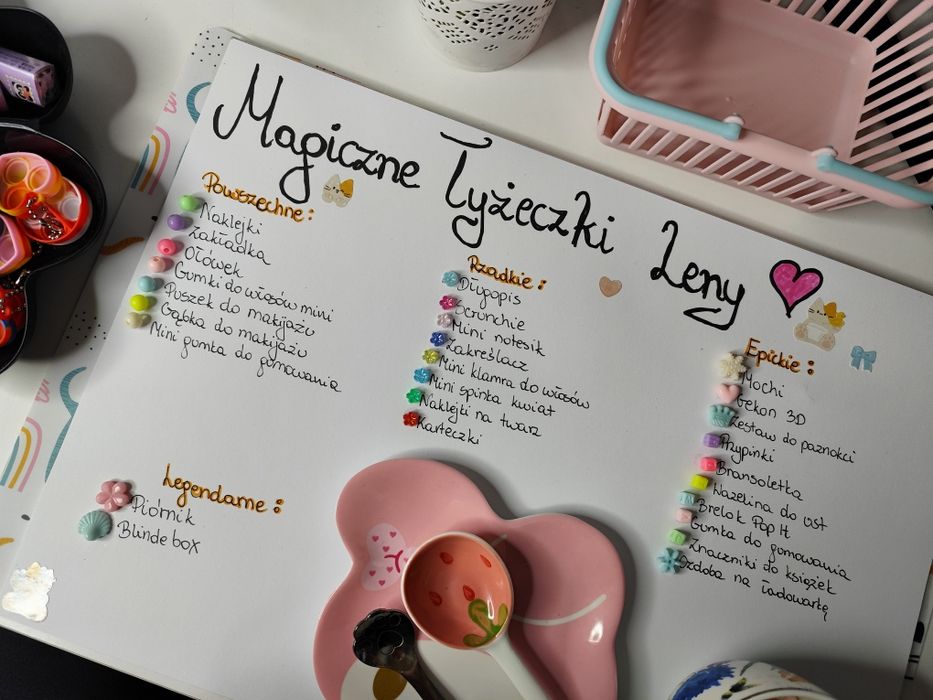 Magiczne Łyżeczki Leny
Powszechne:
Naklejki
Zakładka
Ołówek
Gumki do włosów mini
Puszek do makijażu
Gąbka do makijażu
Mini gumka do gumowania
Rzadkie:
Długopis
Scrunchie
Mini notesik
Zakreślacz
Mini klamra do włosów
Mini spinka kwiat
Naklejki na twarz
Karteczki
Epickie:
Mochi
Gekon 3D
Zestaw do paznokci
Przypinki
Bransoletka
Wazelina do ust
Brelok Pop It
Gumka do gumowania
Znaczniki do książek
Ozdoba na ładowarkę
Legendarne:
Piórnik
Blinde box